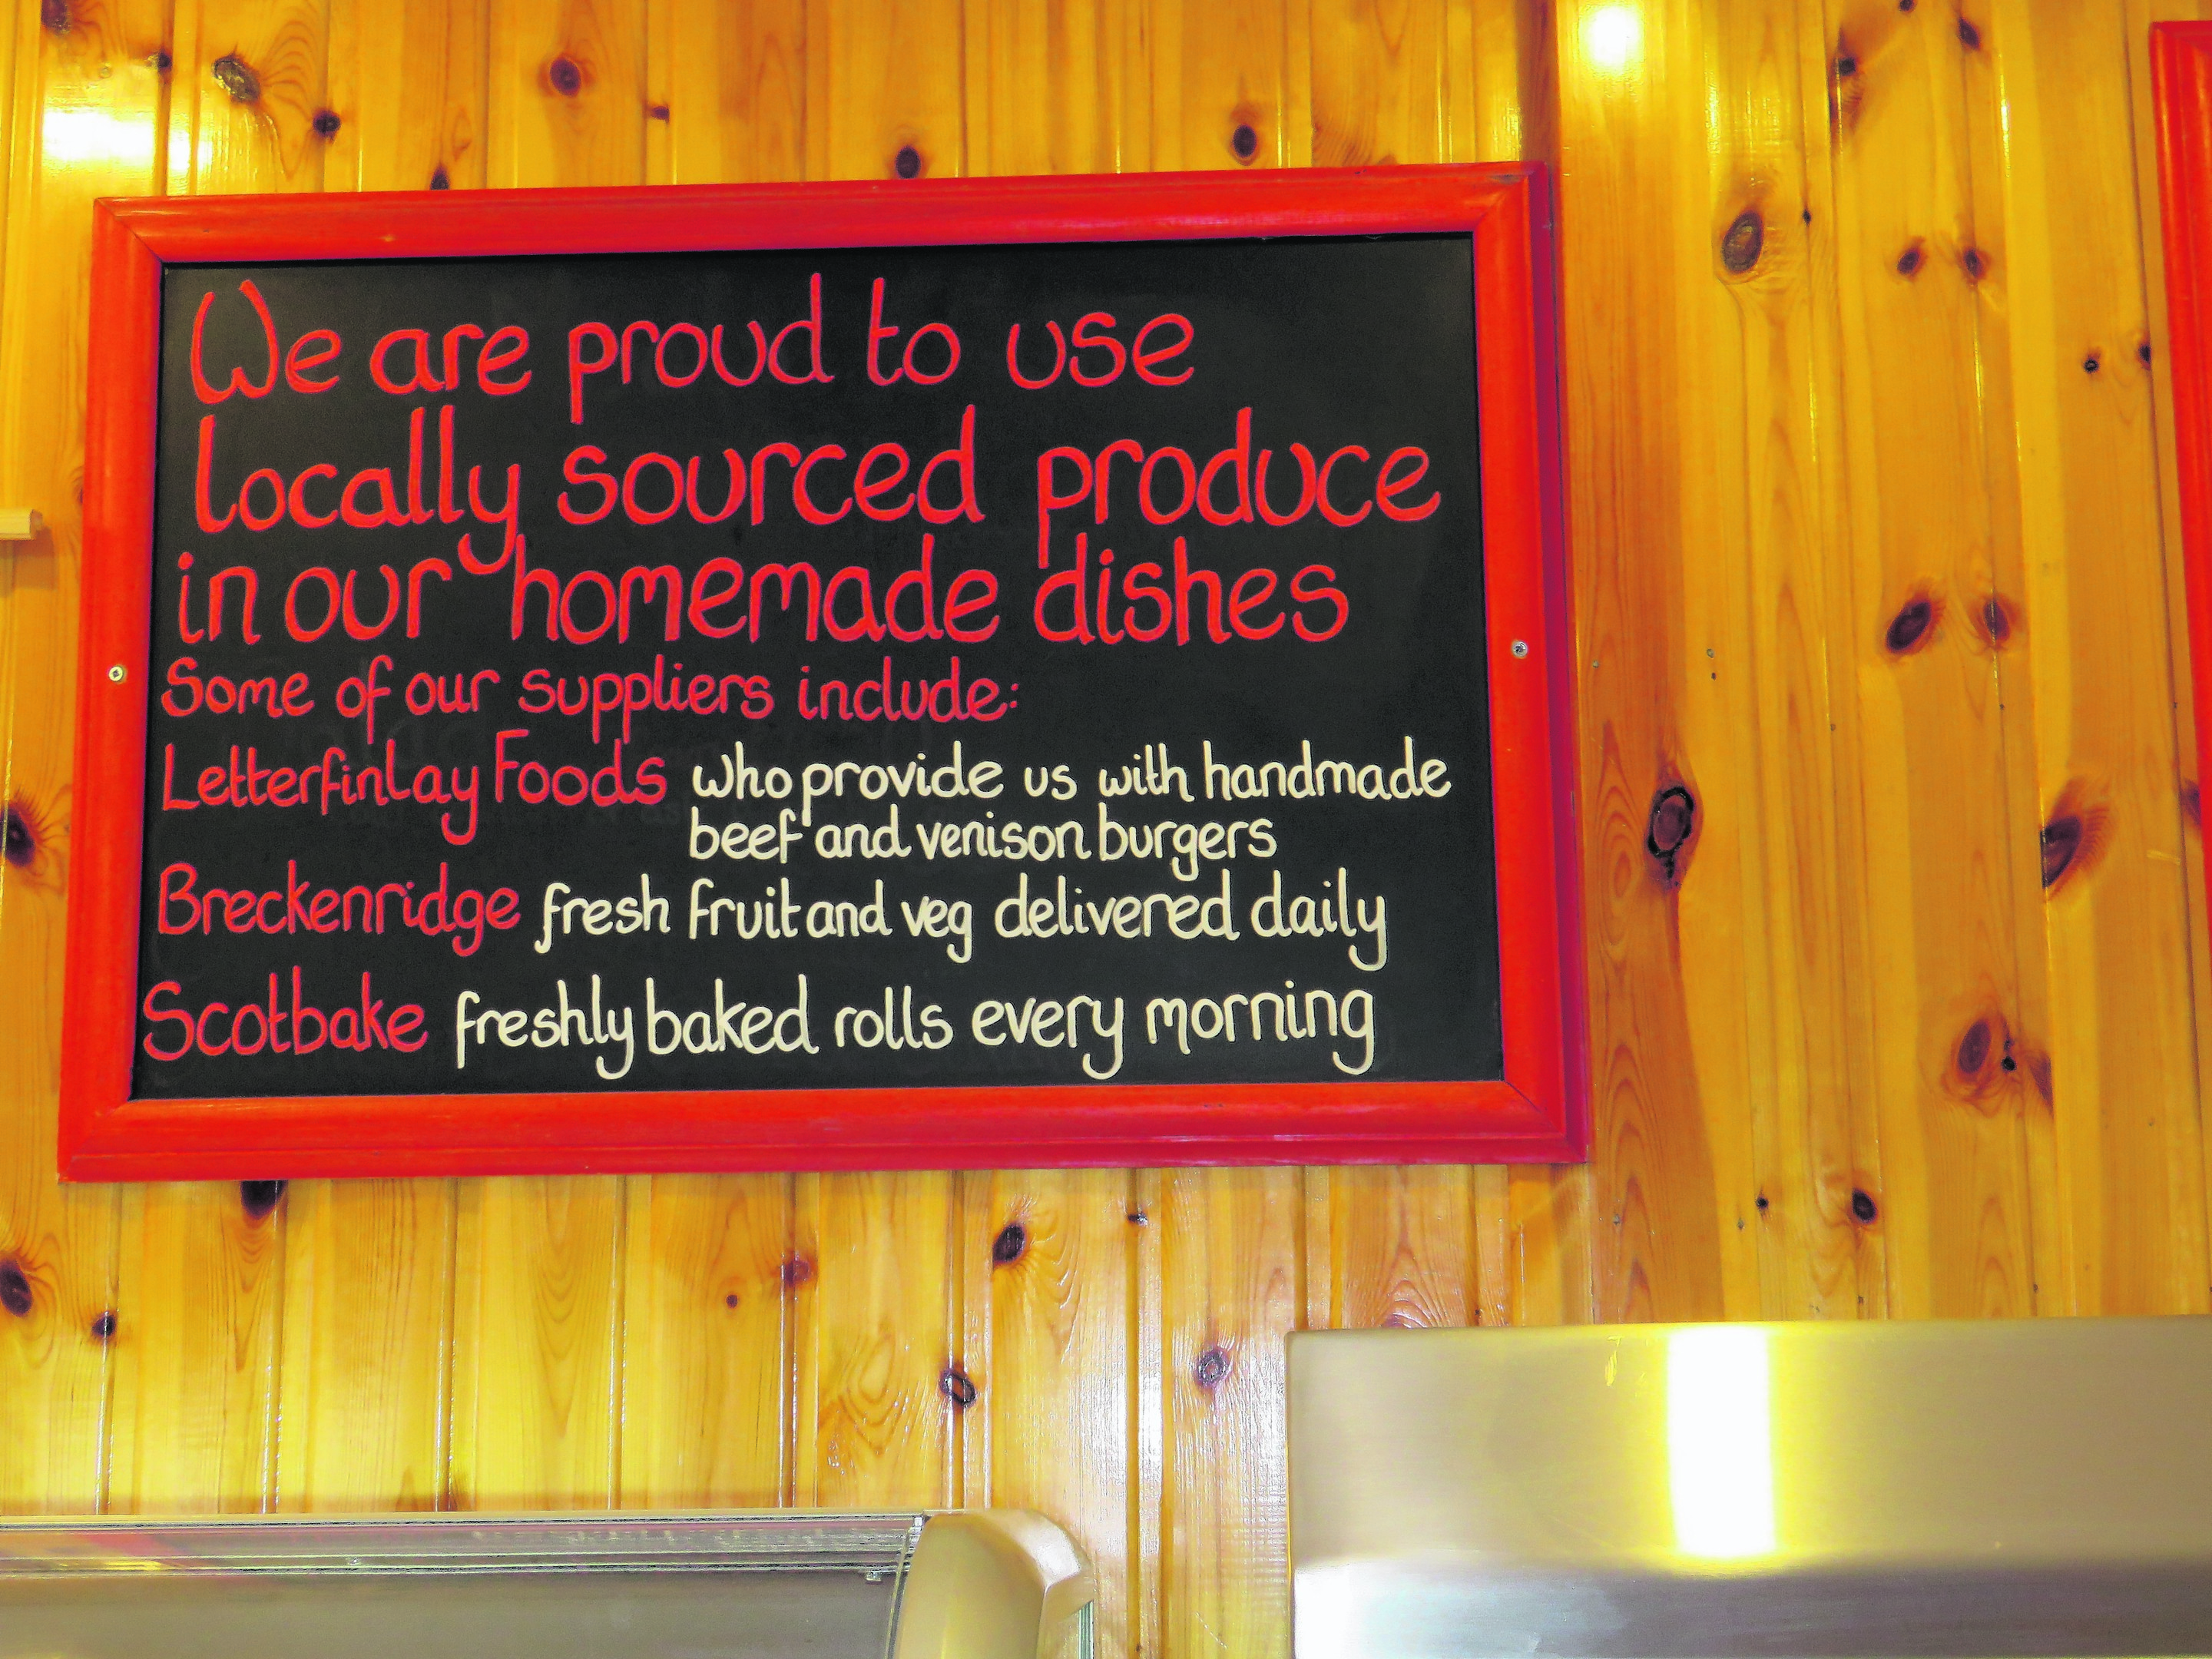 We are proud to use
locally sourced produce
in our homemade dishes
Some of our suppliers include:
Letterfinlay Foods who provide us with handmade
beef and venison burgers
Breckenridge fresh fruit and veg delivered daily
Scotbake freshly baked rolls every morning